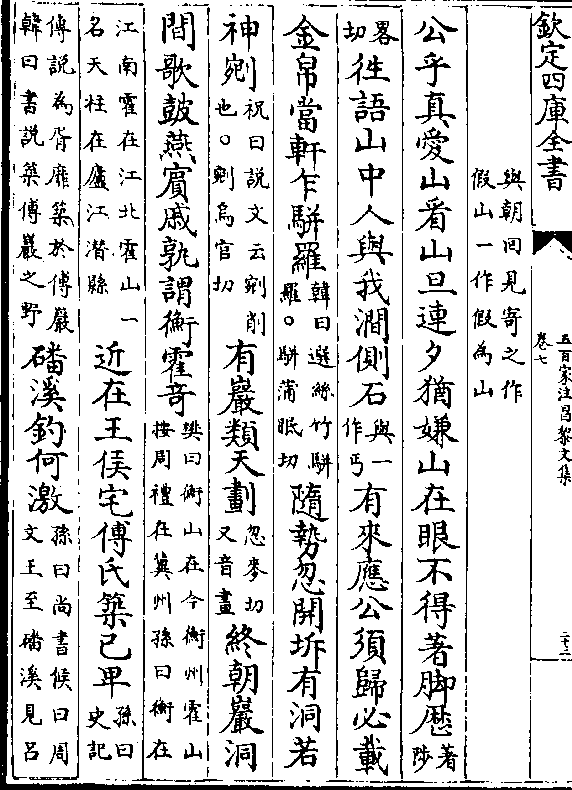 欽定四庫全書
五百家注昌黎文集
卷七
二十二
與朝回見寄之作
假山一作假為山
公乎真愛山看山旦連夕猶嫌山在眼不得著脚歷著陟
略切徃語山中人與我澗側石與一作丐有來應公須歸必載
金帛當軒乍駢羅韓曰選絲竹駢羅○駢蒲眠切隨勢忽開坼有洞若
神剜祝曰說文云剜削也○剜烏官切有巖類天劃忽麥切又音畫終朝巖洞
間歌鼓燕賓戚孰謂衡霍竒樊曰衡山在今衡州霍山按周禮在冀州孫曰衡在
江南霍在江北霍山一名天柱在廬江潛縣近在王侯宅傅氏築已卑孫曰史記
傳說為胥靡築於傅巖韓曰書說築傅巖之野磻溪釣何激孫曰尚書候曰周文王至磻溪見吕